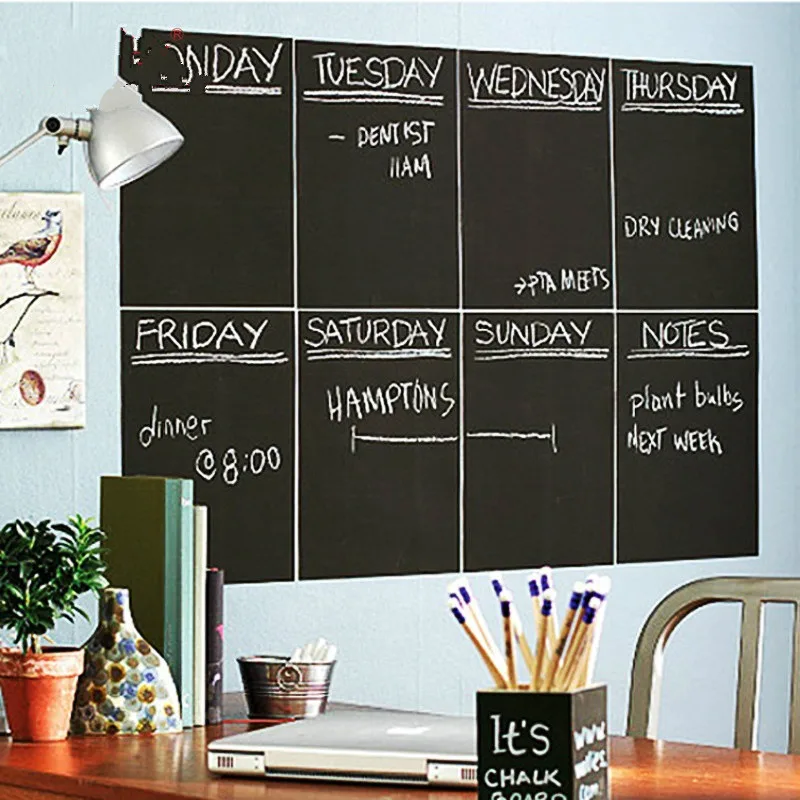 MONDAY
TUESDAY
- DENTIST
11AM
WEDNESDAY
→PTA MEETS
THURSDAY
DRY CLEANING
FRIDAY
dinner
@ 8:00
SATURDAY
HAMPTONS
SUNDAY
NOTES
plant bulbs
NEXT WEEK
It's
CHALK
BOARD
www.